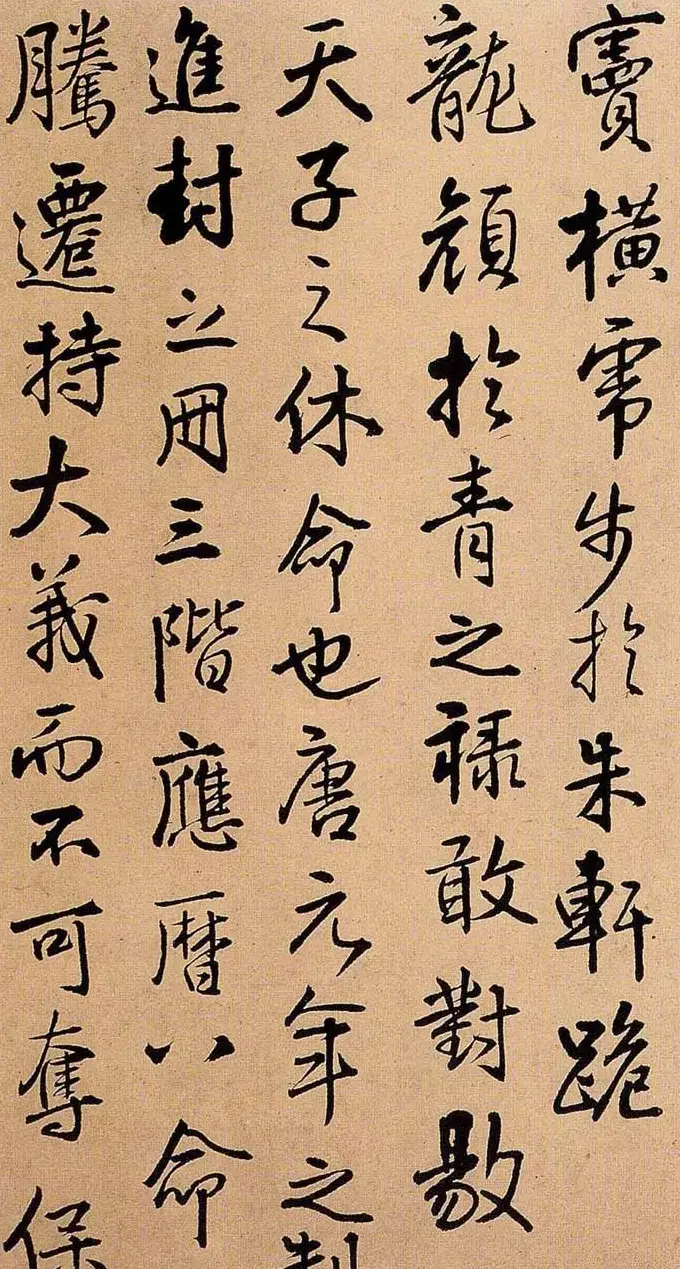 橫步於朱軒跪
龍顔於青之禄敢對敭
天子之休命也唐元年之制
進封之冊三階應曆八命
騰遷持大義而不可奪保